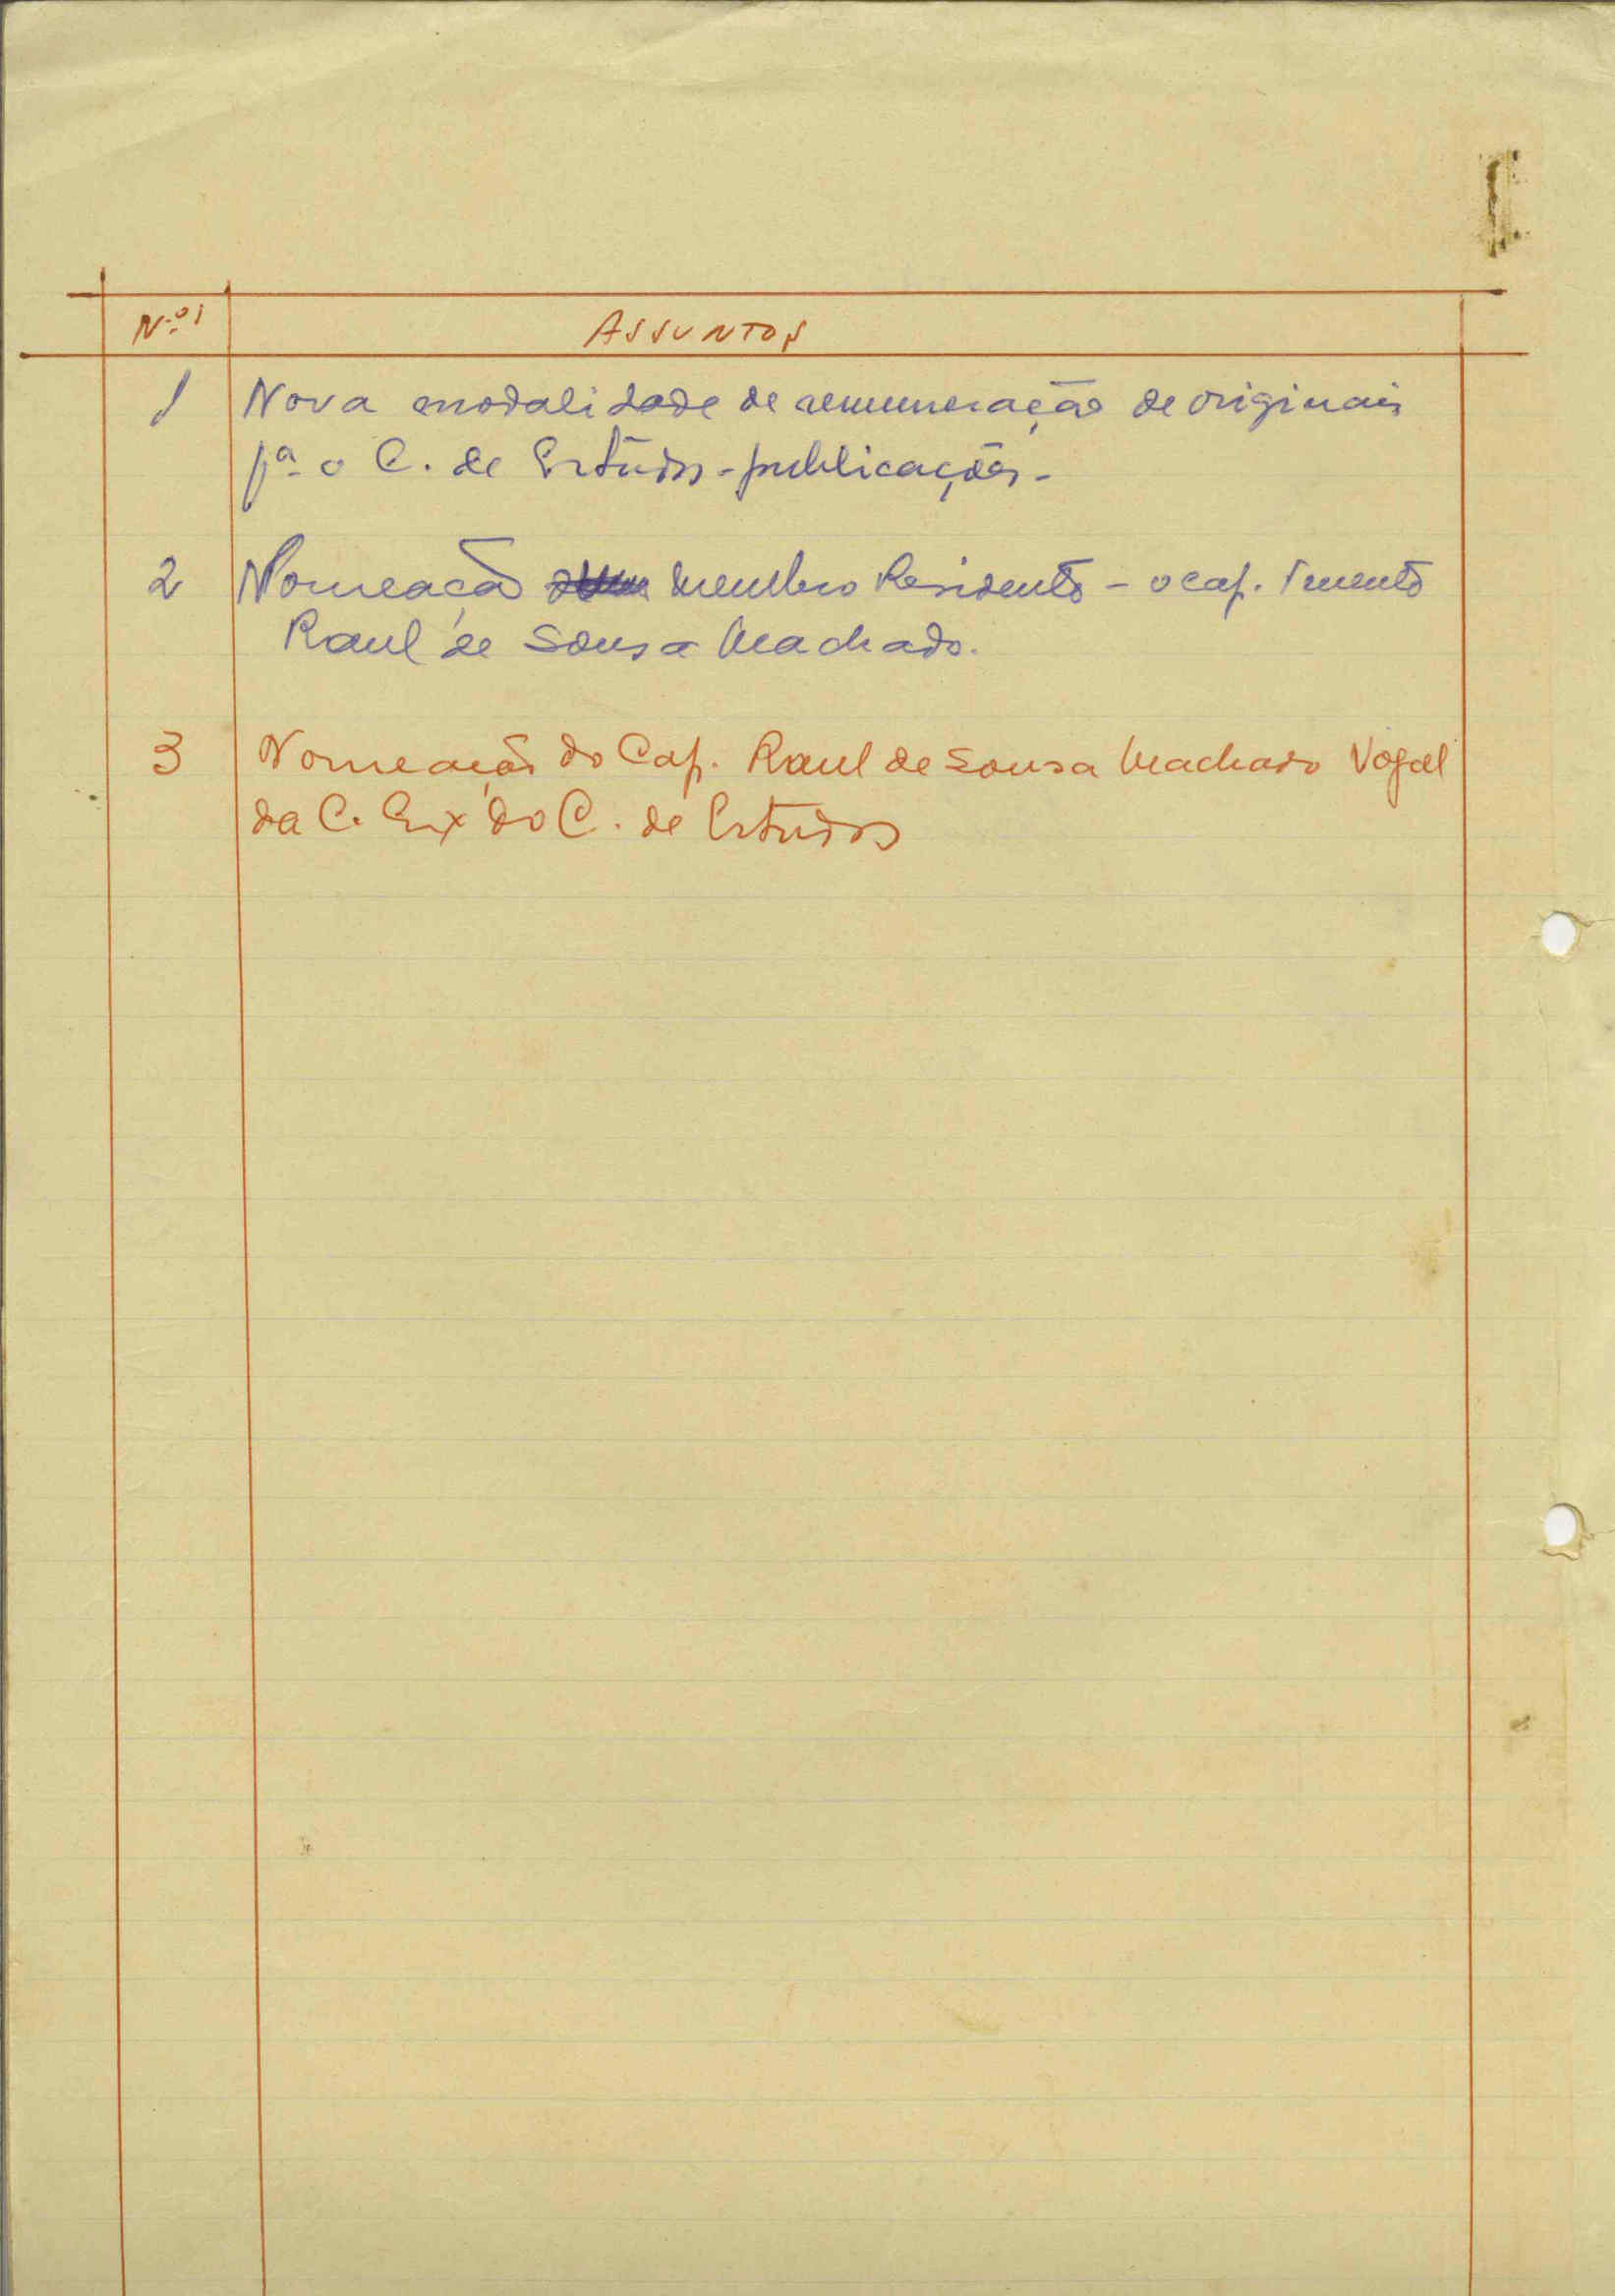 N.os ASSUNTOS
1 Nova modalidade de remuneração de originais
pª o C. de Estudos - publicações -
2 Nomeação membro Residente - o cap. Tenente
Raul de Sousa Machado.
3 Nomeação do Cap. Raul de Sousa Machado Vogal
da C. Ex do C. de Estudos